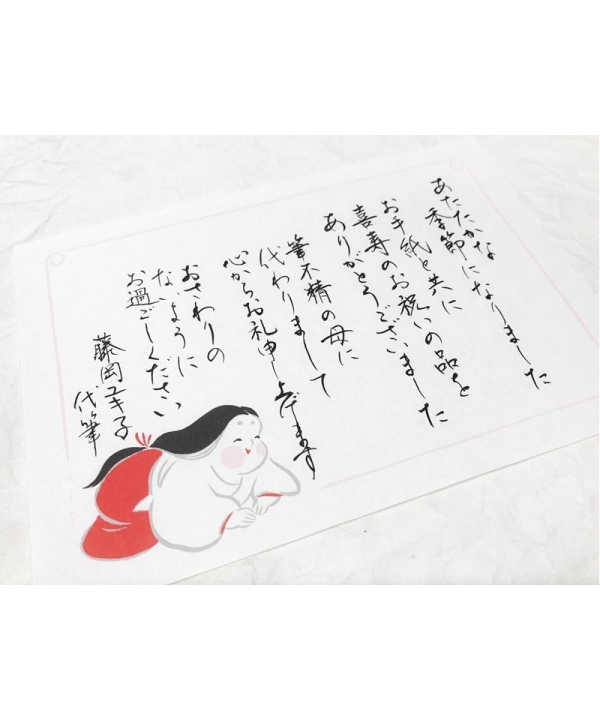 あたたかな
季節になりました
お手紙と共に
喜寿のお祝いの品を
ありがとうございました
筆不精の母に
代わりまして
心からお礼申し上げます
おさわりの
ないように
お過ごしください
藤岡ユキ子
代筆